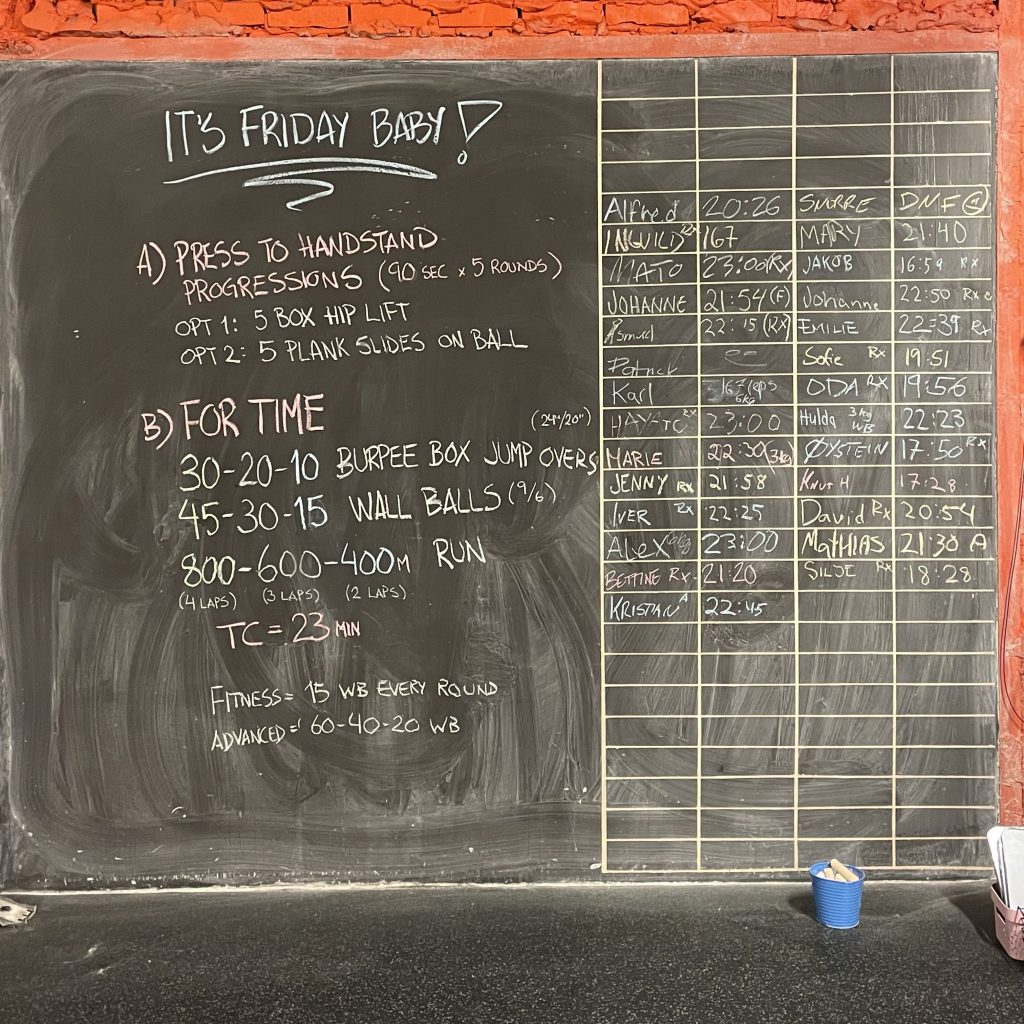 IT'S FRIDAY BABY!
A) PRESS TO HANDSTAND
PROGRESSIONS (90 SEC x 5 ROUNDS)
OPT 1: 5 BOX HIP LIFT
OPT 2: 5 PLANK SLIDES ON BALL
B) FOR TIME
(24"/20")
30-20-10 BURPEE BOX JUMP OVERS
45-30-15 WALL BALLS (9/6)
800-600-400M RUN
(4 LAPS) (3 LAPS) (2 LAPS)
TC = 23 MIN
FITNESS = 15 WB EVERY ROUND
ADVANCED = 60-40-20 WB
Alfred 20:26 SNORRE DNF
INGUILD 167 MARY 21:40
MATO 23:00 (Rx) JAKOB 16:59 Rx
JOHANNE 21:54 (F) Johanne 22:50 Rx
22:15 (RX) EMILIE 22:39 Rx
Patrick Sofie Rx 19:51
Karl 167 reps 6kg ODA RX 19:56
23:00 Hulda 3kg WB 22:23
MARIE 22:30 (3kg) ØYSTEIN 17:50 Rx
JENNY Rx 21:58 KNUT H 17:28
IVER Rx 22:25 David Rx 20:54
ALEX 6kg 23:00 MATHIAS 21:30 A
BETTINE Rx 21:20 SILJE RX 18:28
KRISTIAN A 22:45